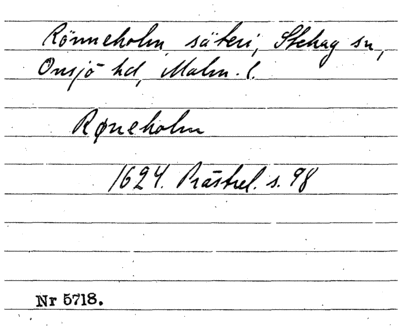 Rönneholm, säteri, Stehag sn,
Onsjö hd, Malm. l.
Røneholm
1624. Prästrel. s. 98
Nr 5718.